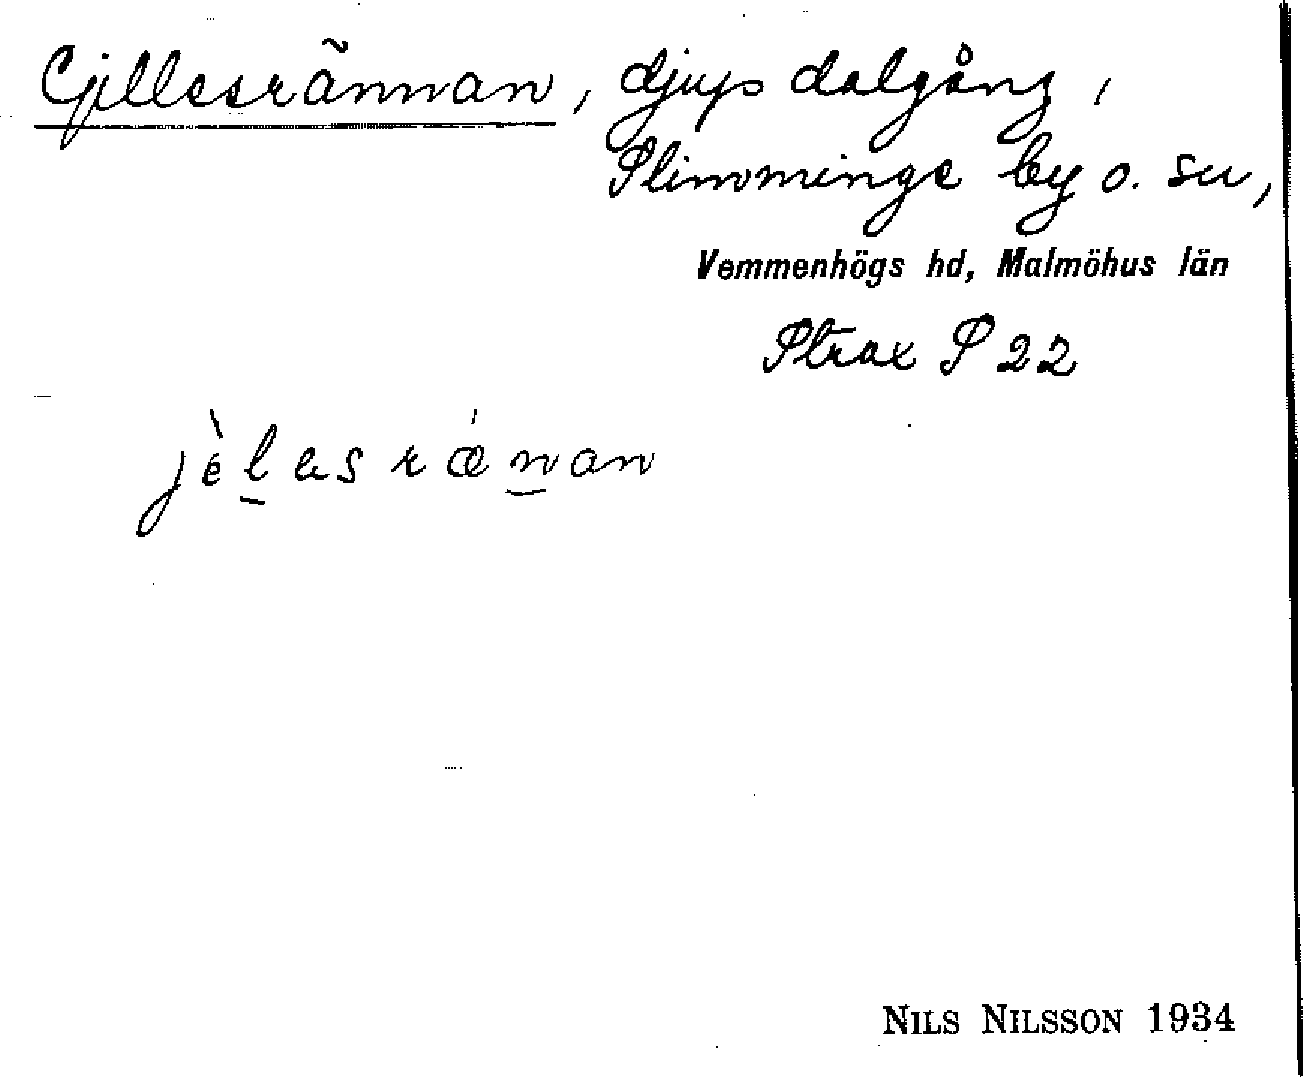 Gillesrännan, djup dalgång,
Slimminge by o. sn,
Vemmenhögs hd, Malmöhus län
Strax S 22
jèlas rǽnan
NILS NILSSON 1934